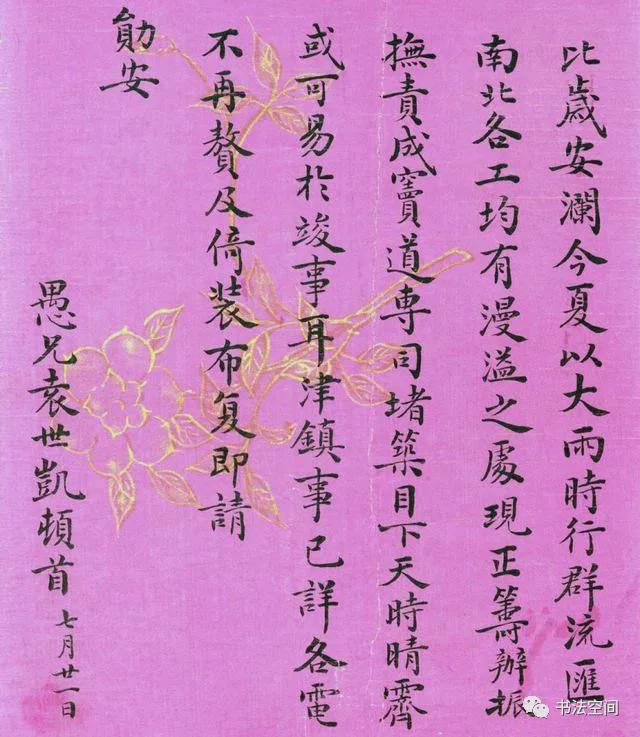 比歲安瀾今夏以大雨時行群流匯
南北各工均有漫溢之處現正籌辦振
撫責成竇道專司堵築目下天時晴霽
或可易於竣事耳津鎮事已詳各電
不再贅及倚裝布复即請
勛安
愚兄袁世凱頓首 七月廿一日
书法空间